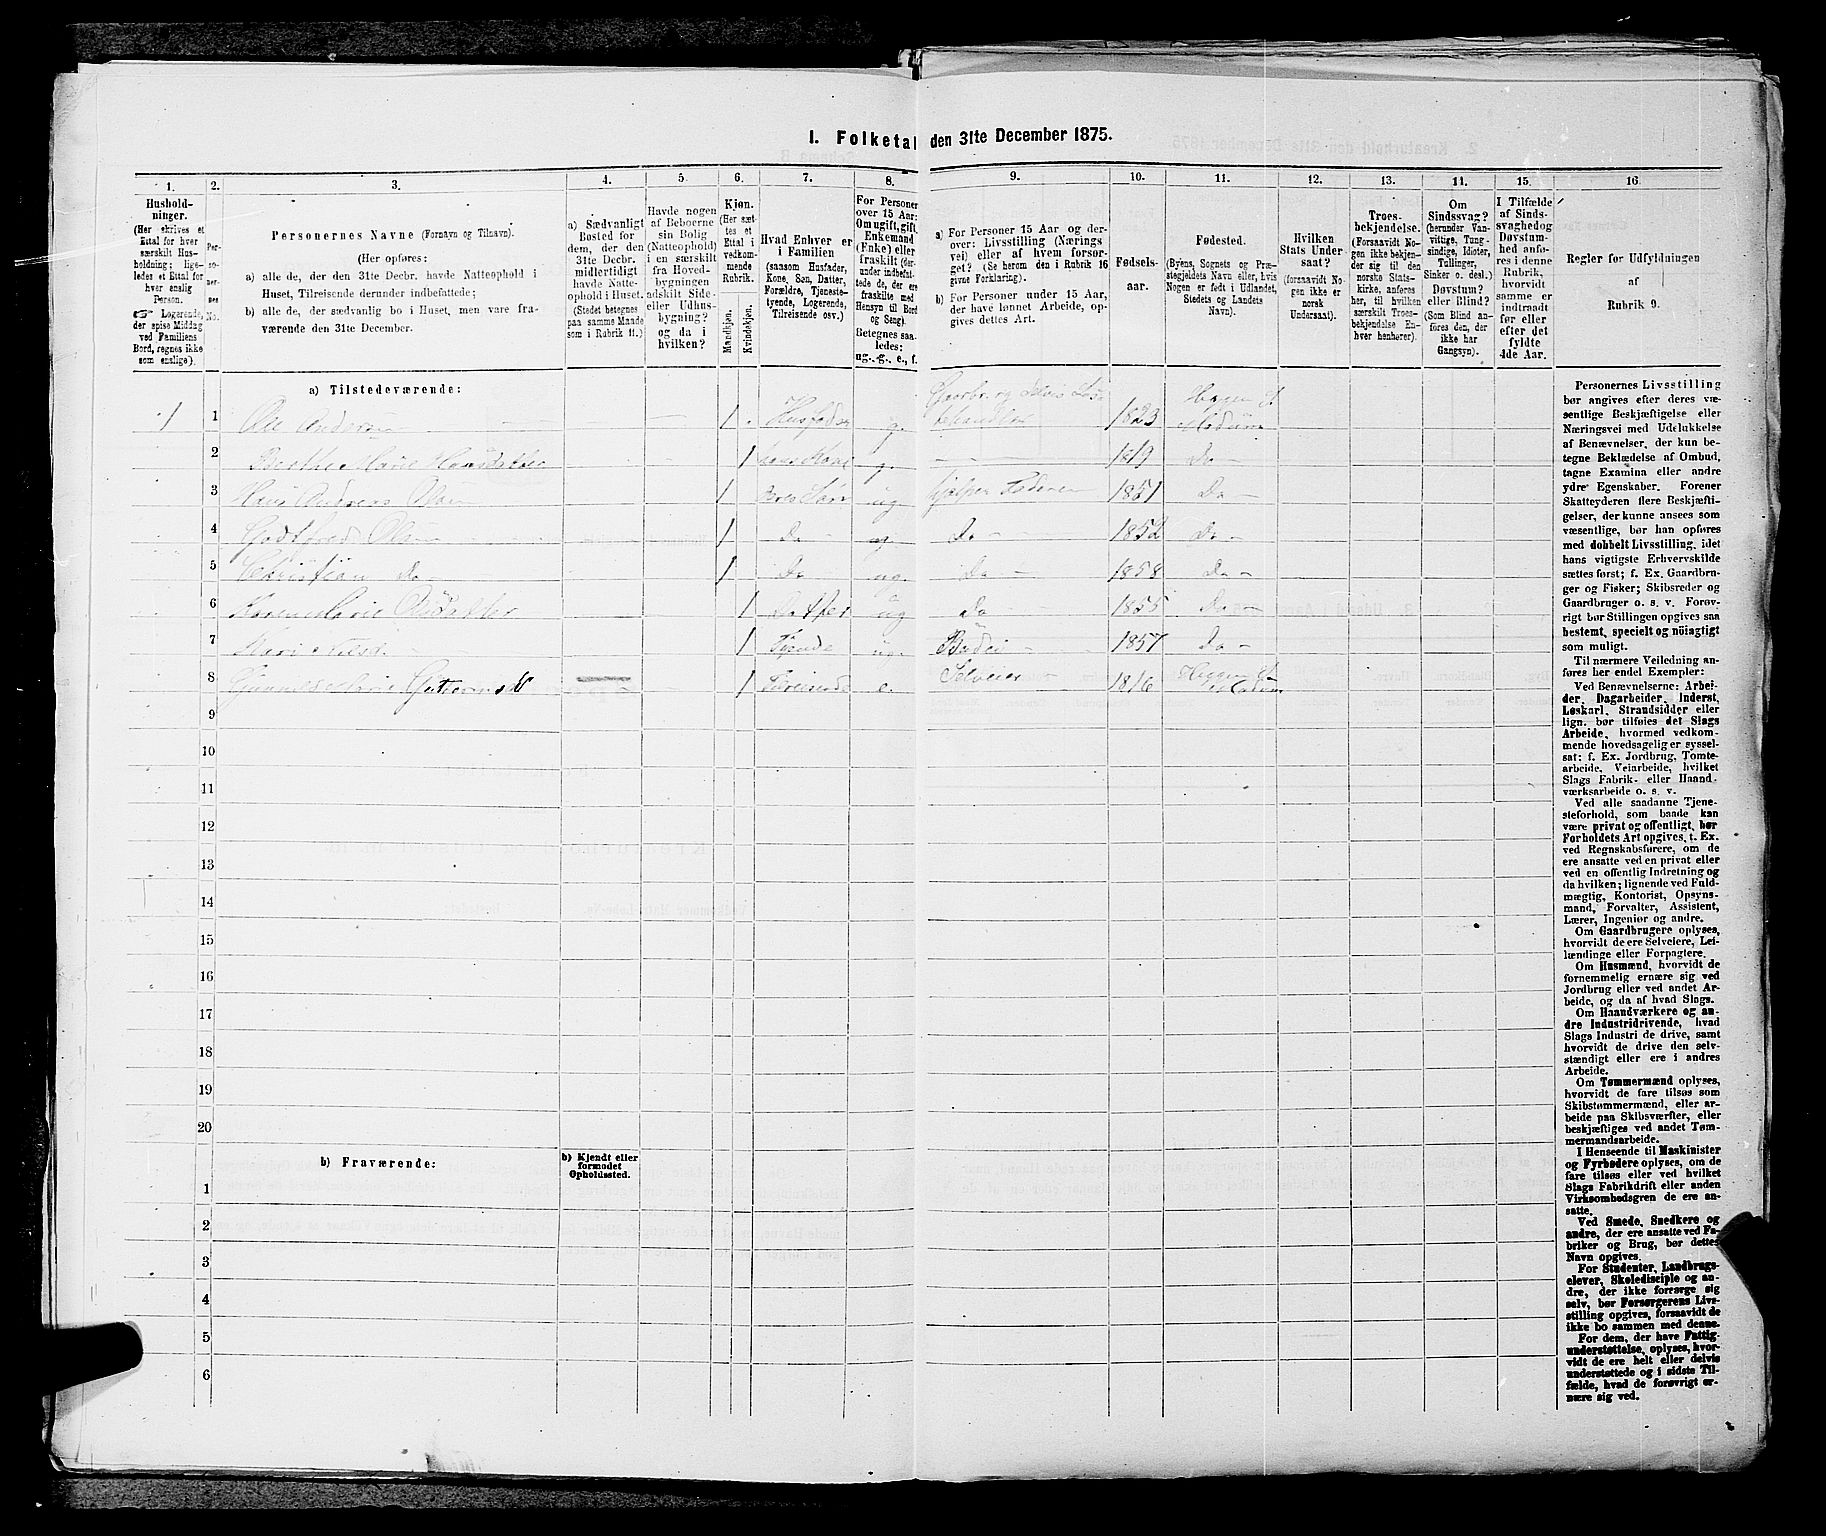 I. Folketal den 31te December 1875.
1.
Hushold-
ninger.
(Her skrives et
Ettal for hver
særskilt Hus-
holdning; lige-
ledes et Ettal for
hver enslig
Person.
☞ Logerende,
der spise Middag
ved Familiens
Bord, regnes ikke
som enslige).
2.
Per-
so-
ner-
nes
No.
3.
Personernes Navne (Fornavn og Tilnavn).
(Her opføres:
a) alle de, der den 31te Decbr. havde Natteophold i
Huset, Tilreisende derunder indbefattede;
b) alle de, der sædvanlig bo i Huset, men vare fra-
værende den 31te December.
4.
a) Sædvanligt
Bosted for
dem, der den
31te Decbr.
midlertidigt
havde Natte-
ophold i Huset.
(Stedet betegnes
paa samme Maade
som i Rubrik 11.)
5.
Havde nogen
af Beboerne
sin Bolig
(Natteophold)
i en særskilt
fra Hoved-
bygningen
adskilt Side-
eller Udhus-
bygning?
og da i
hvilken?
6.
Kjøn.
(Her sæt-
tes et
Ettal i
vedkom-
mende
Rubrik.
Mandkjøn.
Kvindekjøn.
7.
Hvad Enhver er
i Familien
(saasom Husfader,
Kone, Søn, Datter,
Forældre, Tjeneste-
tyende, Logerende,
Tilreisende osv.)
8.
For Personer
over 15 Aar:
Om ugift, gift,
Enkemand
(Enke) eller
fraskilt (der-
under indbefat-
tede de, der ere
fraskilte med
Hensyn til Bord
og Seng).
Betegnes saa-
ledes:
ug., g., e., f.
9.
a) For Personer 15 Aar og der-
over: Livsstilling (Nærings
vei) eller af hvem forsør-
get? (Se herom den i Rubrik 16
givne Forklaring).
b) For Personer under 15 Aar,
der have lønnet Arbeide, op-
gives dettes Art.
10.
Fødsels-
aar.
11.
Fødested.
(Byens, Sognets og Præ-
stegjeldets Navn eller, hvis
Nogen er født i Udlandet,
Stedets og Landets
Navn).
12.
Hvilken
Stats Under
saat?
(forsaavidt No-
gen ikke er
norsk
Undersaat).
13.
Troes-
bekjendelse.
(Forsaavidt No-
gen ikke bekjen-
der sig til den
norske Stats-
kirke, anføres
her, til hvilken
særskilt Troes-
bekjendelse En-
hver henhører).
14.
Om
Sindssvag?
(herunder Van-
vittige, Tung-
sindige, Idioter,
Tullinger,
Sinker o. desl.)
Døvstum?
eller Blind?
(Som Blind an-
føres den, der
ikke har
Gangsyn).
15.
I Tilfælde
af Sinds-
svaghed og
Døvstum-
hed anfø-
res i denne
Rubrik,
hvorvidt
samme er
indtraadt
før eller
efter det
fyldte
4de Aar.
16.
Regler for Udfyldningen
af
Rubrik 9.
a) Tilstedeværende:
1 1 Ole Andersen 1 Husfader g. Gaardbr. og Selveier 1823 Heggen S Modum
2 Berthe Marie Hansdatter 1 hans Kone g. 1819 Do
3 Hans Andreas Olsen 1 Deres Søn ug hjelper Faderen 1851 Do
4 Godtfred Olsen 1 Do ug Do 1852 Do
5 Christian Do 1 Do ug. Do 1858 Do
6 Karen Marie Olsdatter 1 ug Do 1855 Do
7 1 Tjende ug. Budeie 1857 Do
8 Marie Guttormsd 1 Tilreisende e. Selveier 1816 Heggen S Modum
9
10
11
12
13
14
15
16
17
18
19
20
b) Fraværende:
b) Kjendt eller
formodet
Opholdssted.
1
2
3
4
5
6
Personernes Livsstilling
bør angives efter deres væ-
sentlige Beskjæftigelse eller
Næringsvei med Udelukkelse
af Benævnelser, der kun be-
tegne Beklædelse af Ombud,
tagne Examina eller andre
ydre Egenskaber. Forener
Skatteyderen flere Beskjæfti-
gelser, der kunne ansees som
væsentlige, bør han opføres
med dobbelt Livsstilling, idet
hans vigtigste Erhvervskilde
sættes først; f. Ex. Gaardbru-
ger og Fisker; Skibsreder og
Gaardbruger o. s. v. Forøv-
rigt bør Stillingen opgives saa
bestemt, specielt og nøiagtigt
som muligt.
Til nærmere Veiledning an-
føres her endel Exempler:
Ved Benævnelserne: Arbei-
der, Dagarbeider, Inderst,
Løskarl, Strandsidder eller
lign. bør tilføies det Slags
Arbeide, hvormed vedkom-
mende hovedsagelig er syssel-
sat; f. Ex. Jordbrug, Tomte-
arbeide, Veiarbeide, hvilket
Slags Fabrik- eller Haand-
værksarbeide o. s. v.
Ved alle saadanne Tjene-
steforhold, som baade kan
være privat og offentligt, bør
Forholdets Art opgives, t. Ex.
ved Regnskabsførere, om de
ere ansatte ved en privat eller
ved en offentlig Indretning og
da hvilken; lignende ved Fuld-
mægtig, Kontorist, Opsyns-
mand, Forvalter, Assistent,
Lærer, Ingeniør og andre.
Om Gaardbrugere oplyses,
hvorvidt de ere Selveiere, Lei-
lændinge eller Forpagtere.
Om Husmænd, hvorvidt de
fornemmelig ernære sig ved
Jordbrug eller ved andet Ar-
beide, og da af hvad Slags.
Om Haandværkere og an-
dre Industridrivende, hvad
Slags Industri de drive, samt
hvorvidt de drive den selv-
stændigt eller ere i andres
Arbeide.
Om Tømmermænd oplyses,
hvorvidt de fare tilsøs som
Skibstømmermænd, eller ar-
beide paa Skibsværfter, eller
beskjæftiges ved andet Tøm-
mermandsarbeide.
I Henseende til Maskinister
og Fyrbødere oplyses, om de
fare tilsøs eller ved hvilket
Slags Fabrikdrift eller anden
Virksomhedsgren de ere an-
satte.
Ved Smede, Snedkere og
andre, der ere ansatte ved Fa-
briker og Brug, bør dettes
Navn opgives.
For Studenter, Landbrugs-
elever, Skoledisciple og an-
dre, der ikke forsørge sig
selv, bør Forsørgerens Livs-
stilling opgives, forsaavidt de
ikke bo sammen med denne.
For dem, der have Fattig-
understøttelse, oplyses, hvor-
vidt de ere helt eller delvis
understøttede og i sidste Til-
fælde, hvad de forøvrigt er-
nære sig ved.